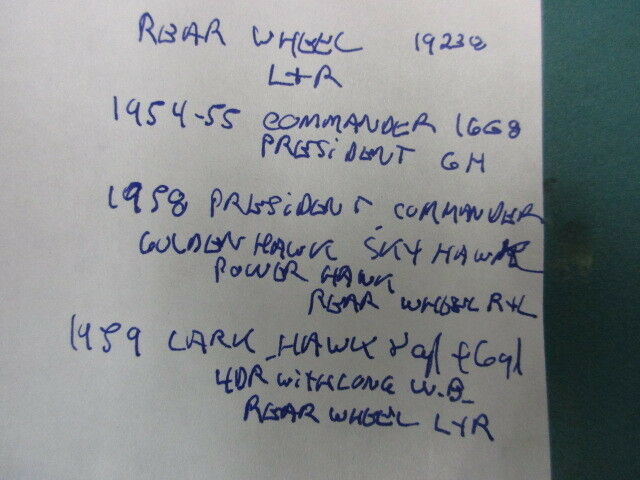 REAR WHEEL 19238
L+R
1954-55 COMMANDER 16G8
PRESIDENT 6H
1958 PRESIDENT, COMMANDER
GOLDEN HAWK SKY HAWK
POWER HAWK
REAR WHEEL R+L
1959 LARK HAWK
4DR WITH LONG W.B.
REAR WHEEL L+R